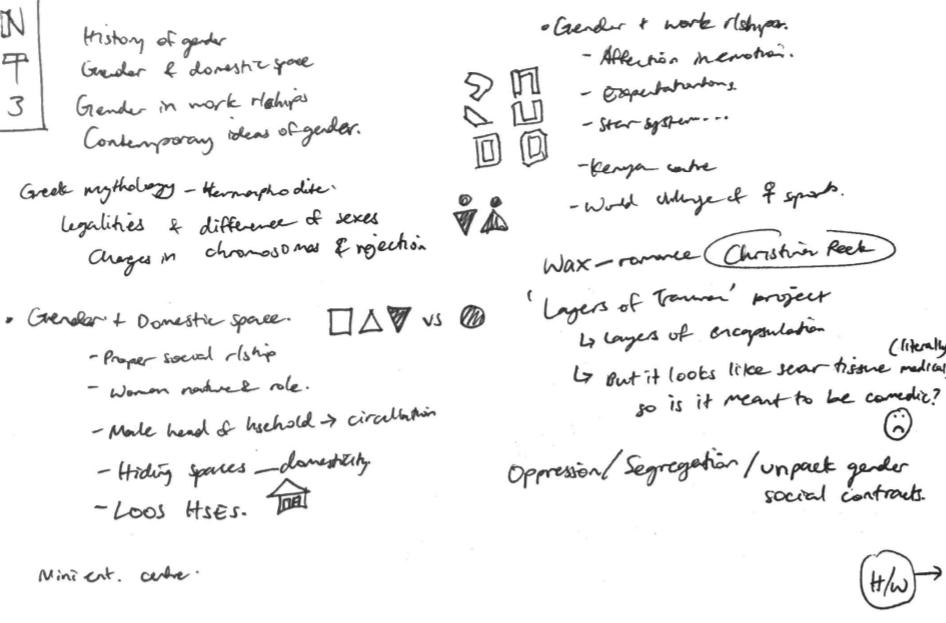 N
T
3
History of gender
Gender & domestic space
Gender in work rlships
Contemporary ideas of gender.
Greek mythology - Hermaphrodite.
Legalities & difference of sexes
Changes in chromosomes & rejection
• Gender + Domestic space. vs
- Proper social rlship
- Woman nature & role.
- Male head of hsehold → circulation
- Hiding spaces - domesticity
- LOOS HSES.
Mini ent. centre.
• Gender + work rlships.
- Affection in emotion.
- Expectations
- Star system...
- Kenyan centre
- World challenge of ♀ sports.
Wax - romance Christina Reek
'Layers of Trauma' project
↳ Layers of encapsulation
↳ But it looks like scar tissue (literally medical
so is it meant to be comedic?
Oppression/Segregation/unpack gender
social contracts.
H/W →